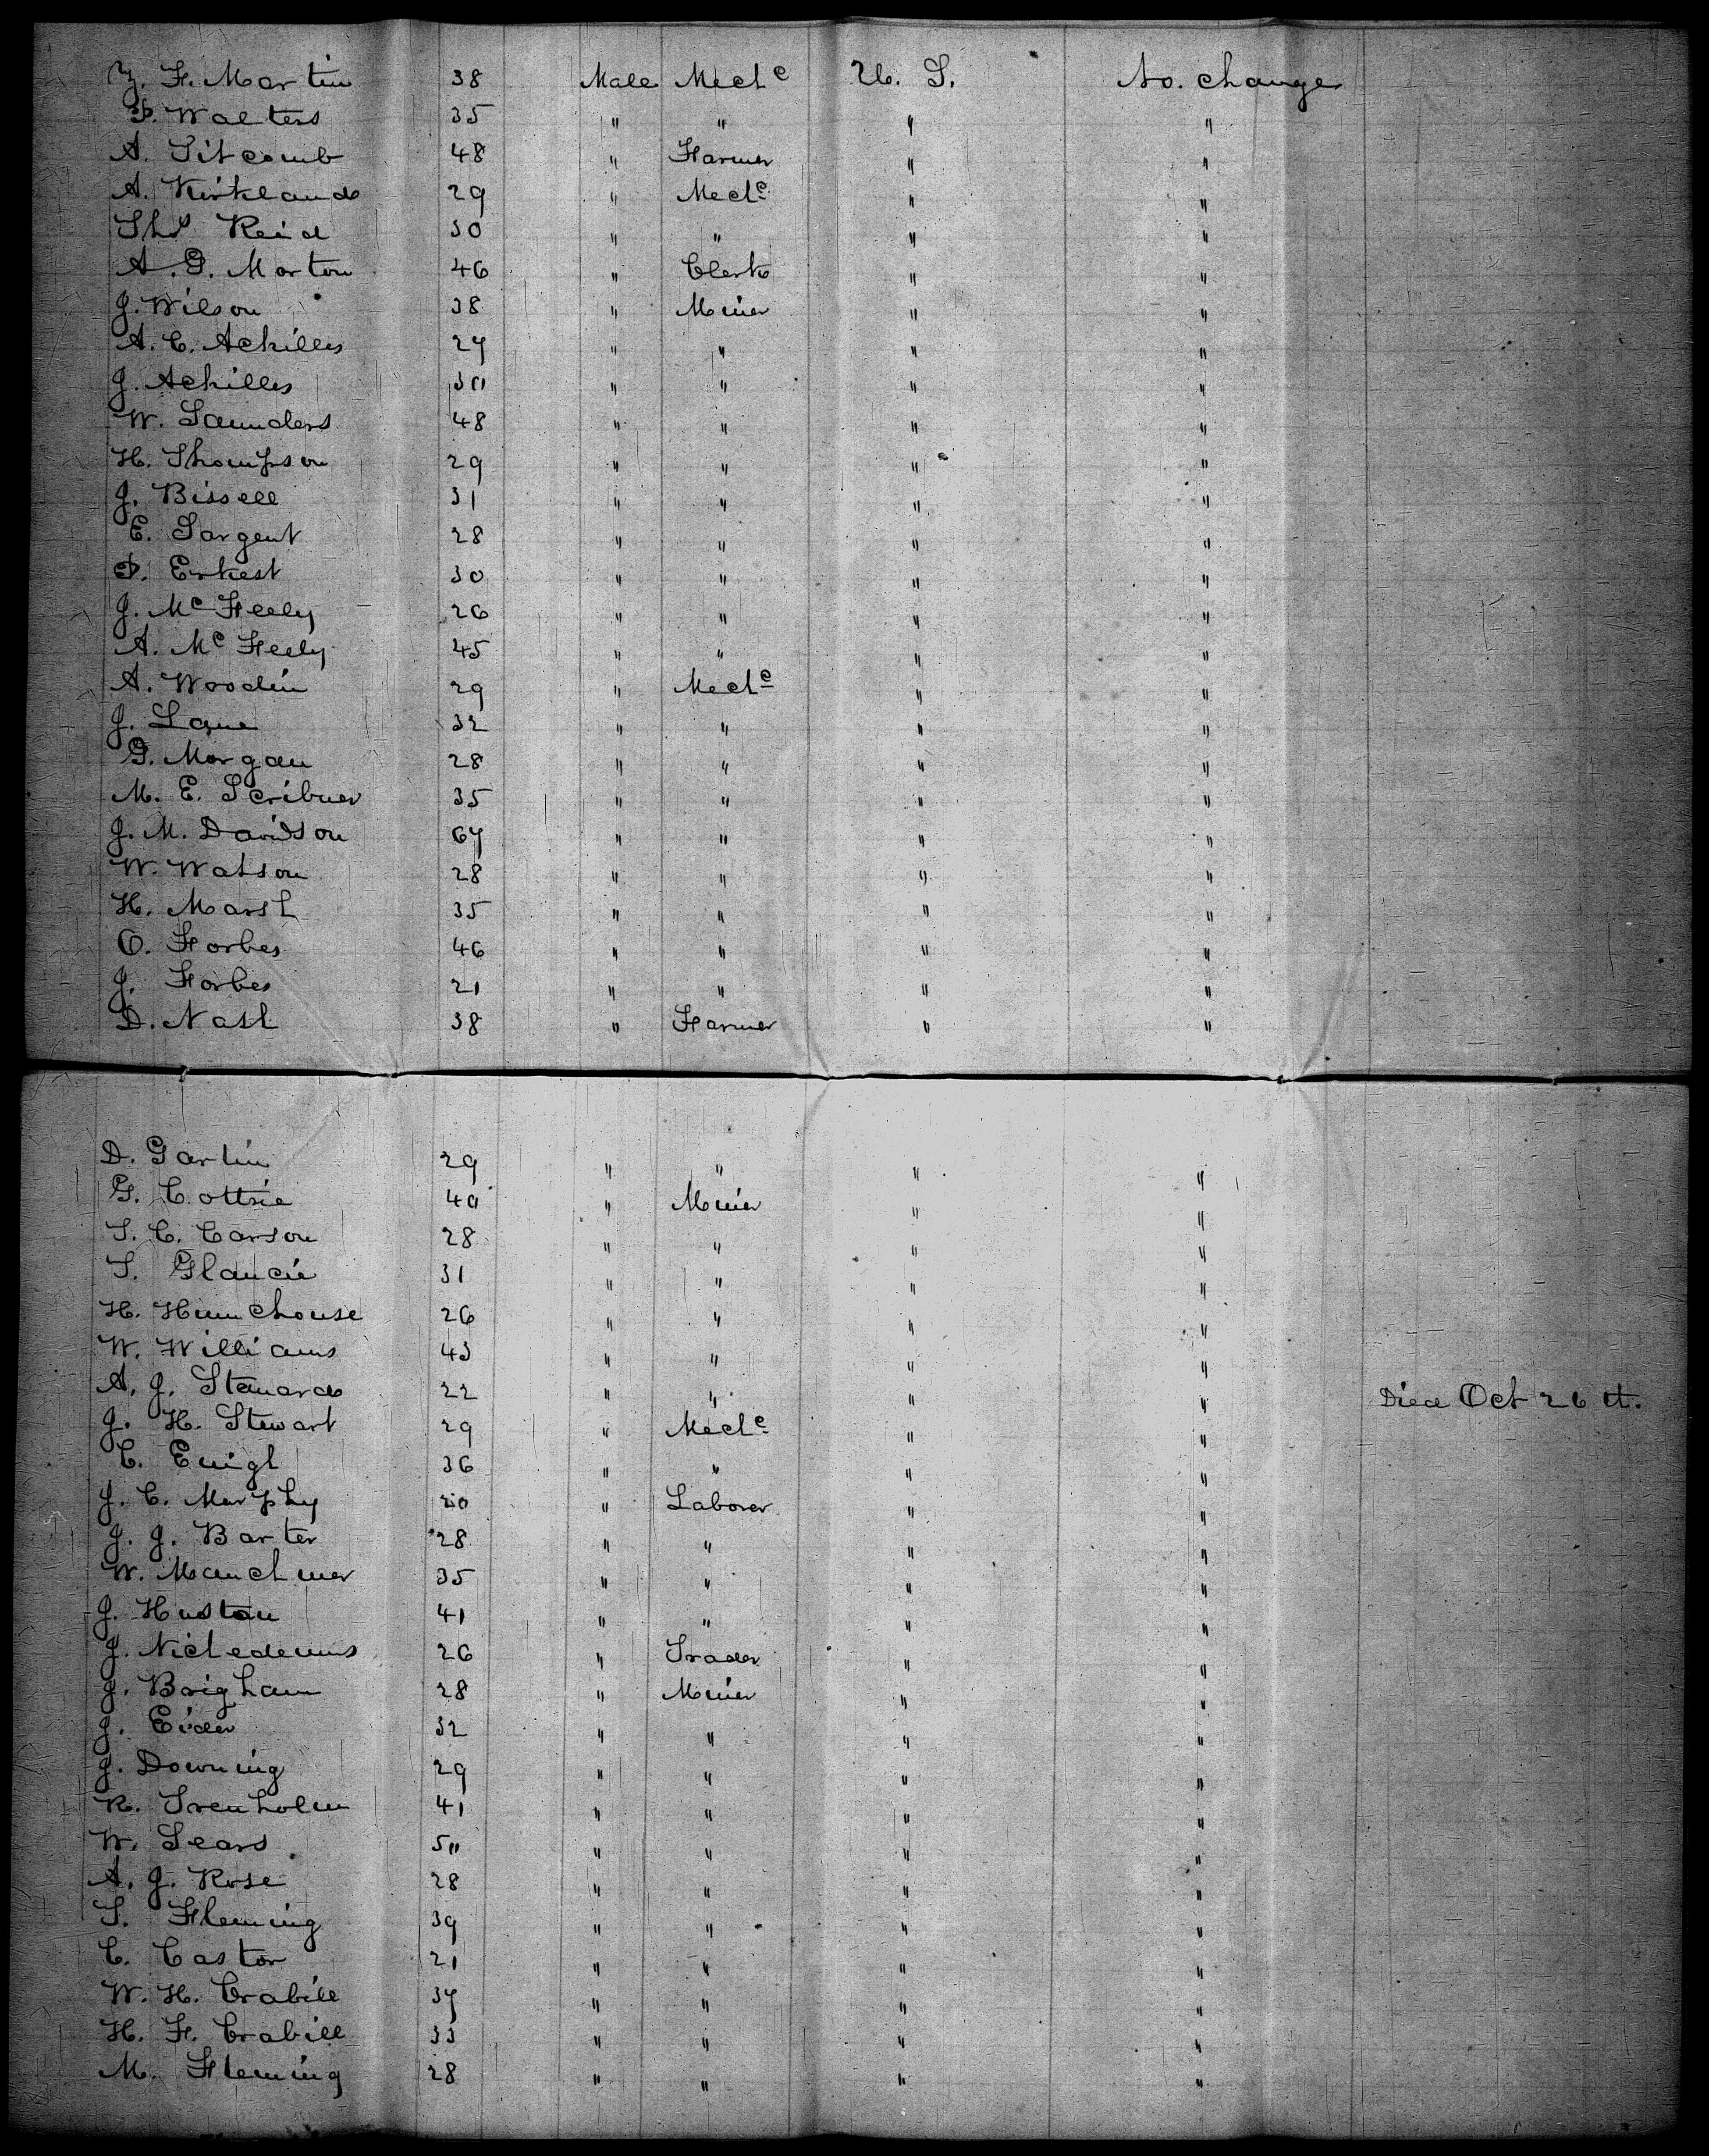 Z. F. Martin 38 Male Mechc U. S. No. change
P. Walters 35 " " " "
A. Titcomb 48 " Farmer " "
A. Kirkland 29 " Mechc " "
Ths Reid 30 " " " "
A. G. Morton 46 " Clerk " "
J. Wilson 38 " Miner " "
A. C. Achilles 27 " " " "
J. Achilles 30 " " " "
W. Saunders 48 " " " "
H. Thompson 29 " " " "
J. Bissell 31 " " " "
E. Sargent 28 " " " "
P. Erkest 30 " " " "
J. Mc Feely 26 " " " "
A. Mc Feely 45 " " " "
A. Woodin 29 " Mechc " "
J. Lane 32 " " " "
G. Morgan 28 " " " "
M. E. Scribner 35 " " " "
J. M. Davidson 67 " " " "
W. Watson 28 " " " "
H. Marsh 35 " " " "
O. Forbes 46 " " " "
J. Forbes 21 " " " "
D. Nash 38 " Farmer " "
D. Garlin 29 " " " "
G. Cottrie 40 " Miner " "
T. C. Carson 28 " " " "
T. Glancie 31 " " " "
H. Hunchouse 26 " " " "
W. Williams 43 " " " "
A. J. Steward 22 " " " " Died Oct 26th.
J. H. Stewart 29 " Mechc " "
C. Enigh 36 " " " "
J. C. Murphy 20 " Laborer " "
J. J. Barter 28 " " " "
W. Manchner 35 " " " "
J. Hustan 41 " " " "
J. Nichedemus 26 " Trader " "
J. Brigham 28 " Miner " "
J. Eider 32 " " " "
J. Downing 29 " " " "
R. Trenholm 41 " " " "
W. Sears 50 " " " "
A. J. Rose 28 " " " "
T. Fleming 39 " " " "
C. Castor 21 " " " "
W. H. Crabill 37 " " " "
H. F. Crabill 33 " " " "
M. Fleming 28 " " " "